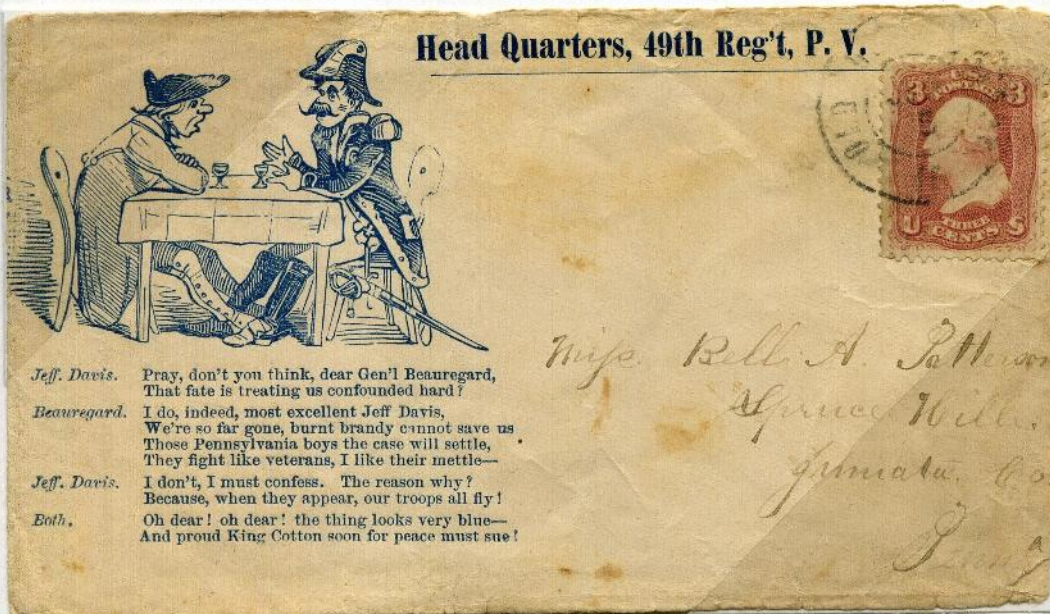 Head Quarters, 49th Reg't, P. V.
3 U.S. 3
POSTAGE
U THREE S
CENTS
Jeff. Davis. Pray, don't you think, dear Gen'l Beauregard,
That fate is treating us confounded hard?
Beauregard. I do, indeed, most excellent Jeff Davis,
We're so far gone, burnt brandy cannot save us
Those Pennsylvania boys the case will settle,
They fight like veterans, I like their mettle—
Jeff. Davis. I don't, I must confess. The reason why?
Because, when they appear, our troops all fly!
Both. Oh dear! oh dear! the thing looks very blue—
And proud King Cotton soon for peace must sue!
Miss. Bell A Patterson
Spruce Hill.
Juniata. Co